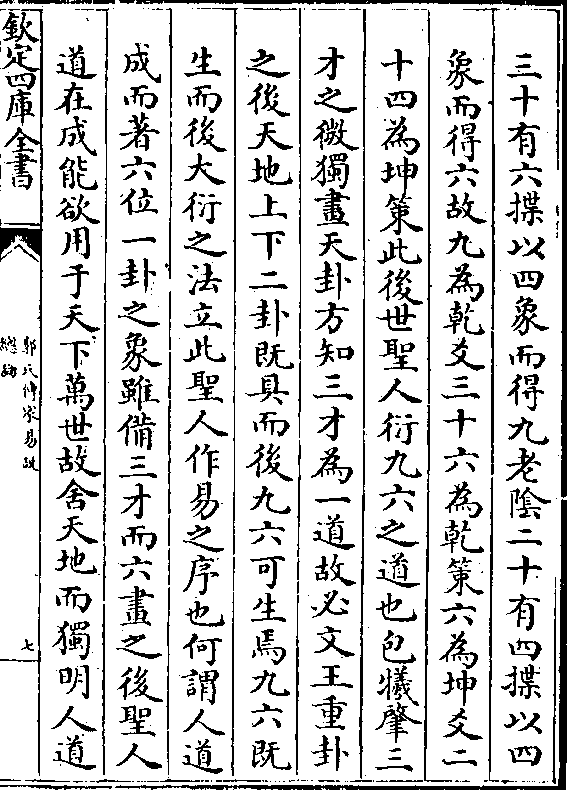 三十有六揲以四象而得九老陰二十有四揲以四
象而得六故九為乾爻三十六為乾策六為坤爻二
十四為坤策此後世聖人衍九六之道也包犧肇三
才之微獨畫天卦方知三才為一道故必文王重卦
之後天地上下二卦既具而後九六可生焉九六既
生而後大衍之法立此聖人作易之序也何謂人道
成而著六位一卦之象雖備三才而六畫之後聖人
道在成能欲用于天下萬世故舍天地而獨明人道
欽定四庫全書
郭氏傳家易説
總論
七